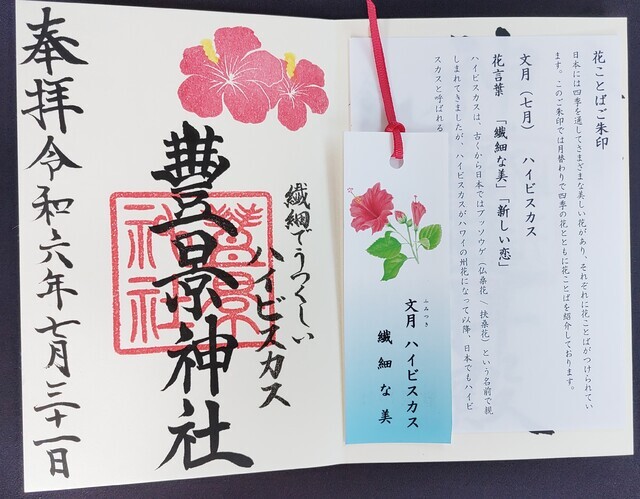 花ことばご朱印
日本には四季を通してさまざまな美しい花があり、それぞれに花ことばがつけられてい
ます。このご朱印では月替わりで四季の花とともに花ことばを紹介しております。
文月（七月）　ハイビスカス
花言葉　「繊細な美」「新しい恋」
ハイビスカスは、古くから日本ではブッソウゲ（仏桑花／扶桑花）という名前で親
しまれてきましたが、ハイビスカスがハワイの州花になって以降、日本でもハイビ
スカスと呼ばれる
ふみつき
文月 ハイビスカス
繊細な美
繊細でうつくしい
ハイビスカス
豊景神社
豊景
神社
奉拝 令和六年七月三十一日